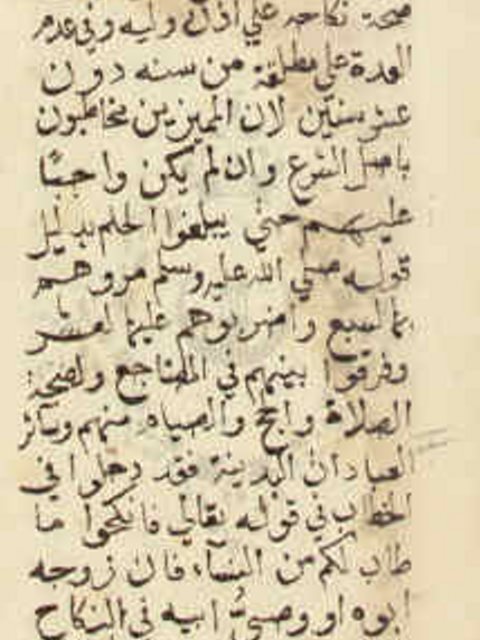 صحة نكاحه علي اذن وليه وفي عدم
العدة علي مطلقة من سنه دون
عشر سنين لان المميزين مخاطبون
باصل الشرع وان لم يكن واجبًا
عليهم حتي يبلغوا الحلم بدليل
قوله صلي الله عليه وسلم مروهم
بها لسبع واضربوهم عليها لعشر
وفرقوا بينهم في المضاجع ولصحة
الصلاة والحج والصيام منهم وسائر
العبادات البدينة فقد دخلوا في
الخطاب في قوله تعالي فانكحوا ما
طاب لكم من النساء فان زوجه
ابوه او وصيُّ ابيه في النكاح